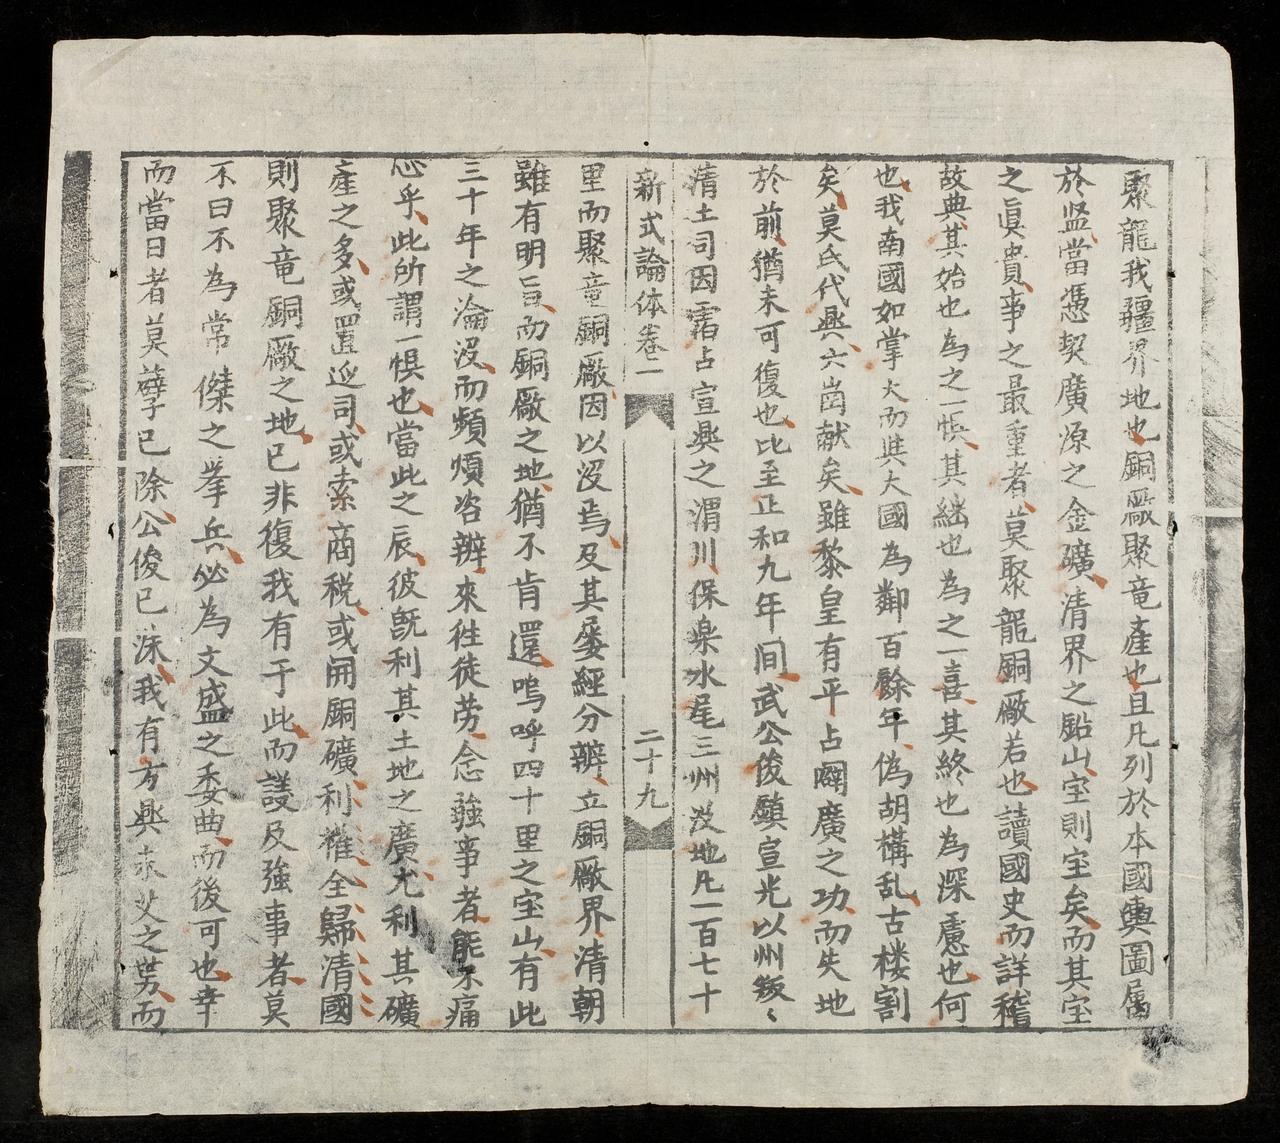 聚龍我疆界地也銅廠聚竜產也且凡列於本國輿圖属
於监當憑契廣源之金礦清界之鉛山宝則宝矣而其宝
之真貴事之最重者莫聚龍銅廠若也讀國史而詳稽
故典其始也為之一悞其継也為之一喜其終也為深慮也何
也我南國如掌大而與大國為鄰百餘年偽胡構乱古楼割
矣莫氏代興六峝献矣雖黎皇有平占闢廣之功而失地
於前猶未可復也比至正和九年间武公俊鎮宣光以州叛〻
清土司因霑占宣興之渭川保楽水尾三州没地凡一百七十
新式論体卷二
二十九
里而聚竜銅廠因以没焉及其屡經分辨立銅廠界清朝
雖有明旨而銅廠之地猶不肯還嗚呼四十里之宝山有此
三十年之淪没而頻煩咨辦來徃徒劳念強事者能不痛
心乎此所謂一悞也當此之辰彼既利其土地之廣尤利其礦
產之多或置巡司或索商税或開銅礦利權全歸清國
則聚竜銅廠之地已非復我有于此而議及強事者莫
不曰不為常傑之挙兵必為文盛之委曲而後可也幸
而當日者莫孽已除公俊已誅我有方興未艾之势而